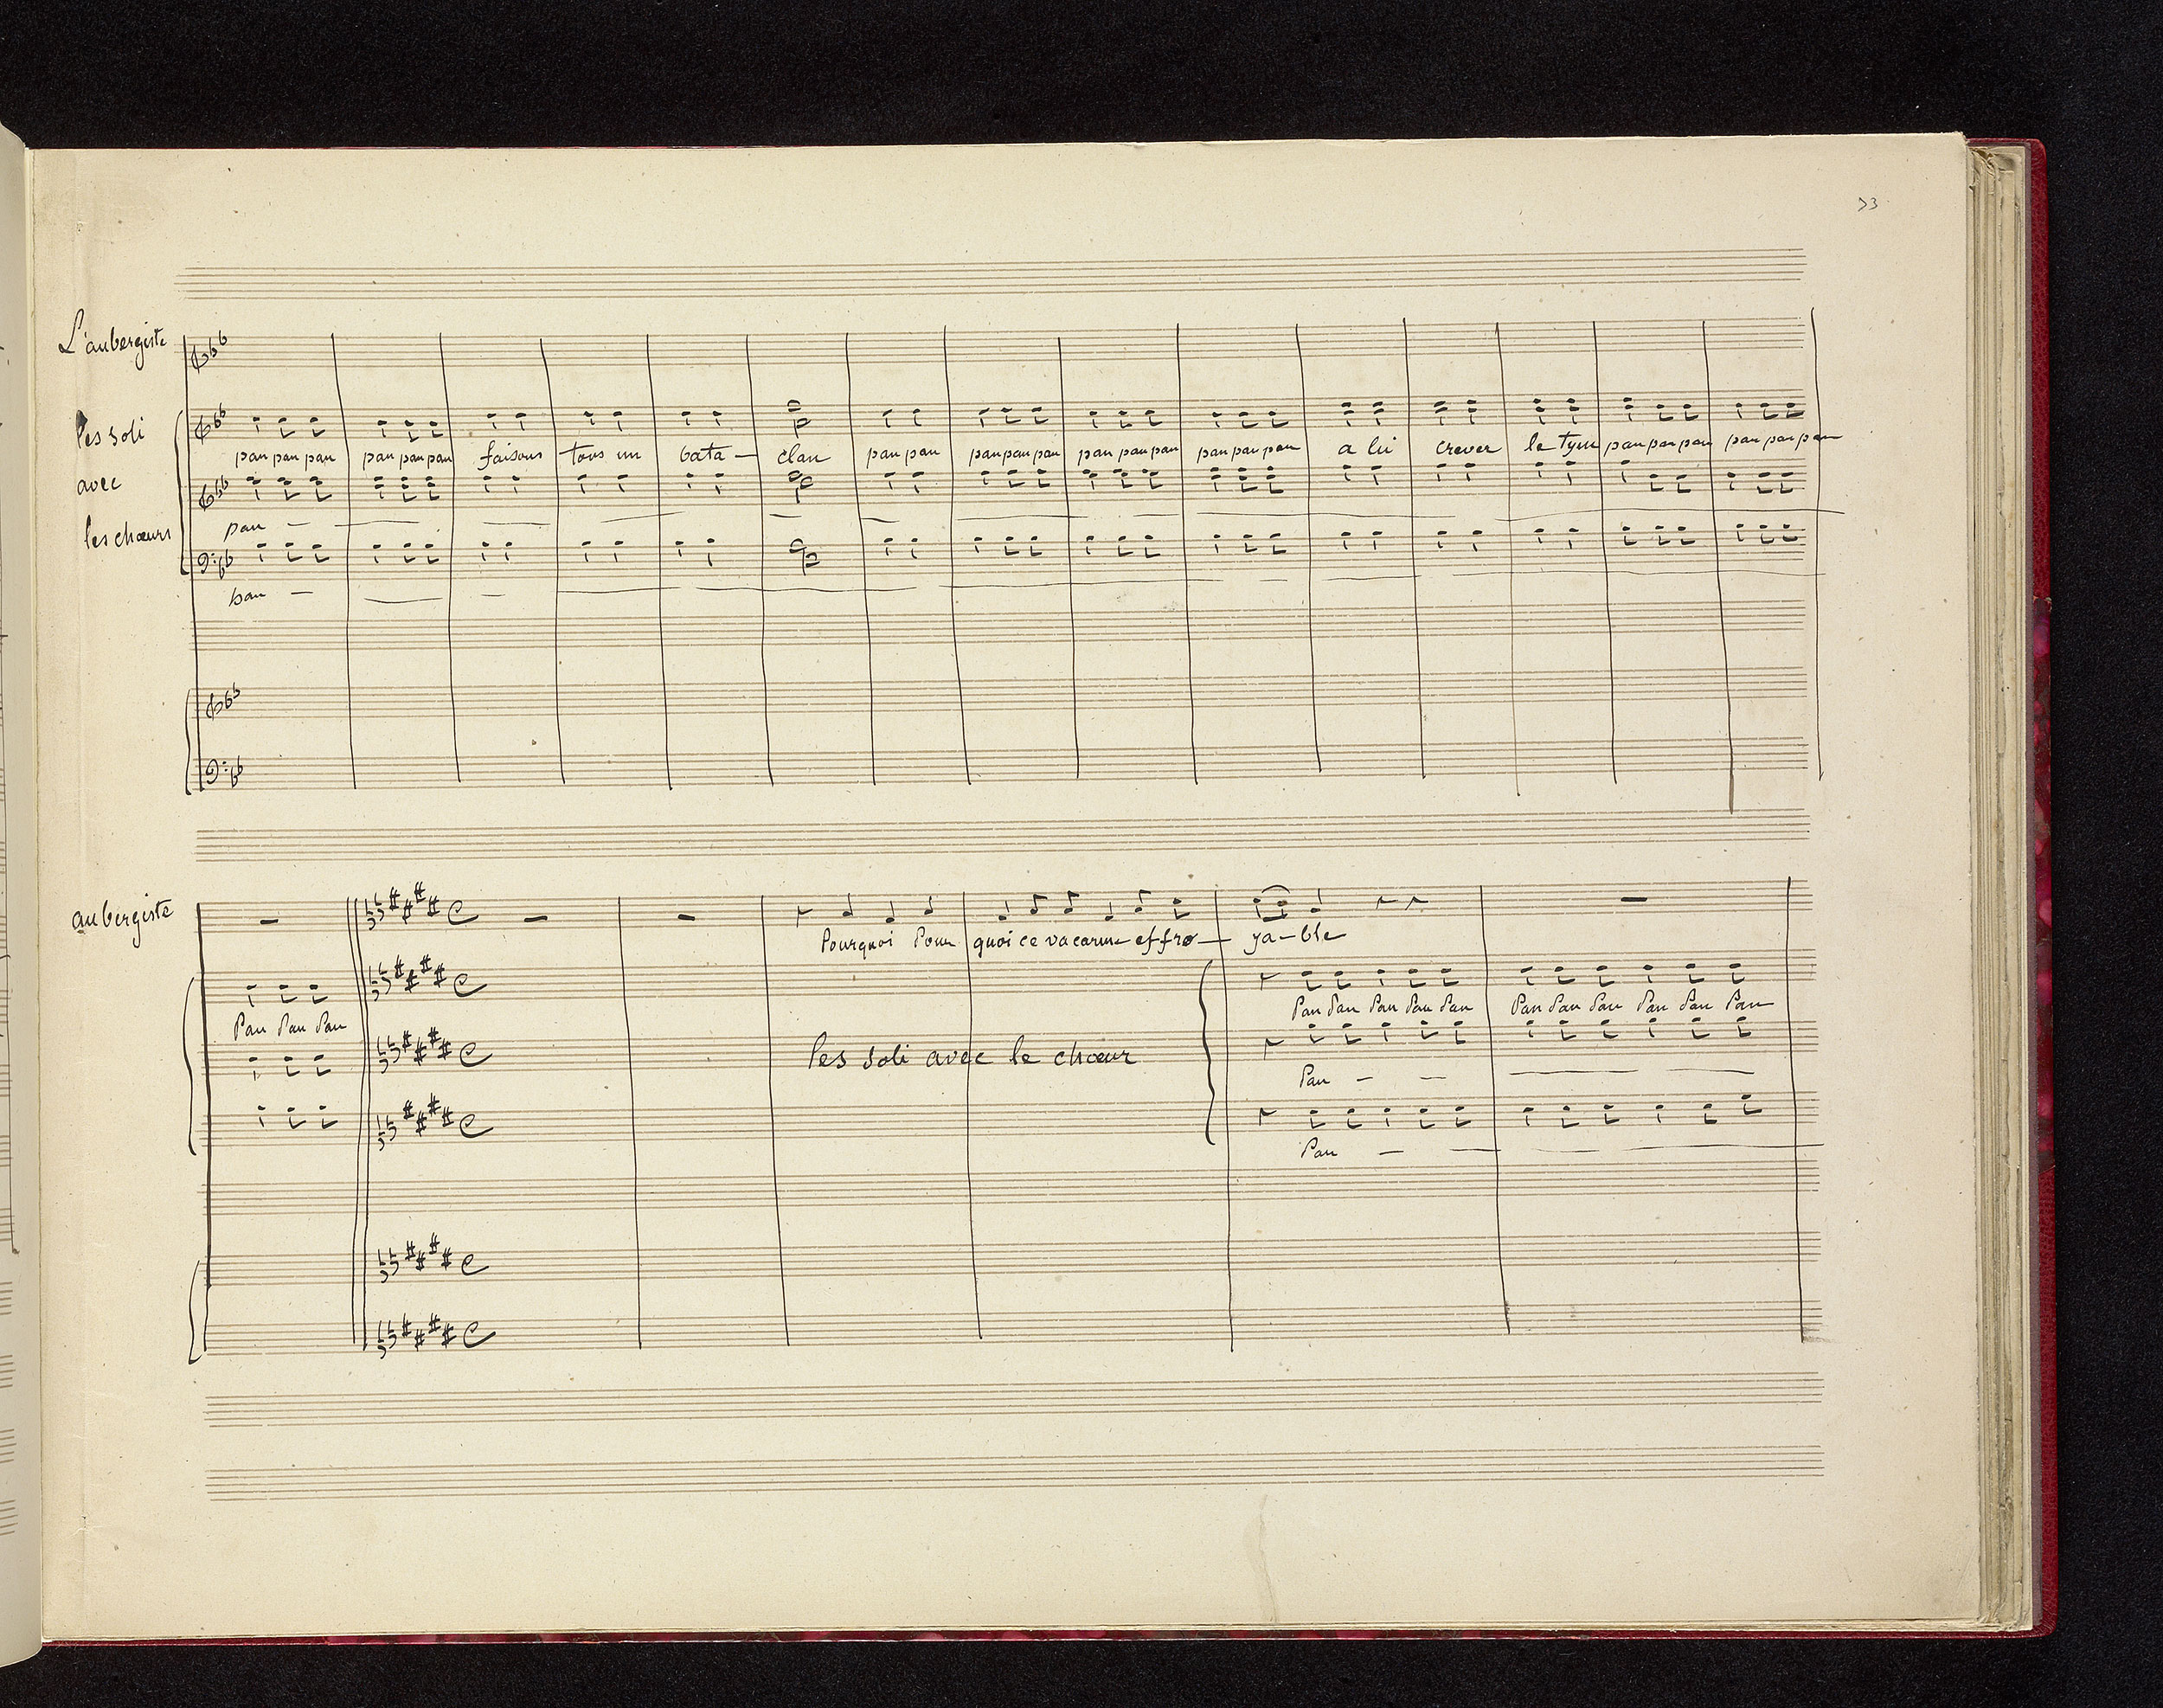 33
L'aubergiste
les soli
avec
les chœurs
pan pan pan pan pan pan faisons tous un bata - clan pan pan pan pan pan pan pan pan pan pan pan a lui crever le tym pan pan pan pan pan pan
pan
pan
aubergiste
Pourquoi Pour quoi ce vacarme effro - ya - ble
Pan Pan Pan
Pan Pan Pan Pan Pan Pan Pan Pan Pan Pan Pan
les soli avec le chœur
Pan
Pan